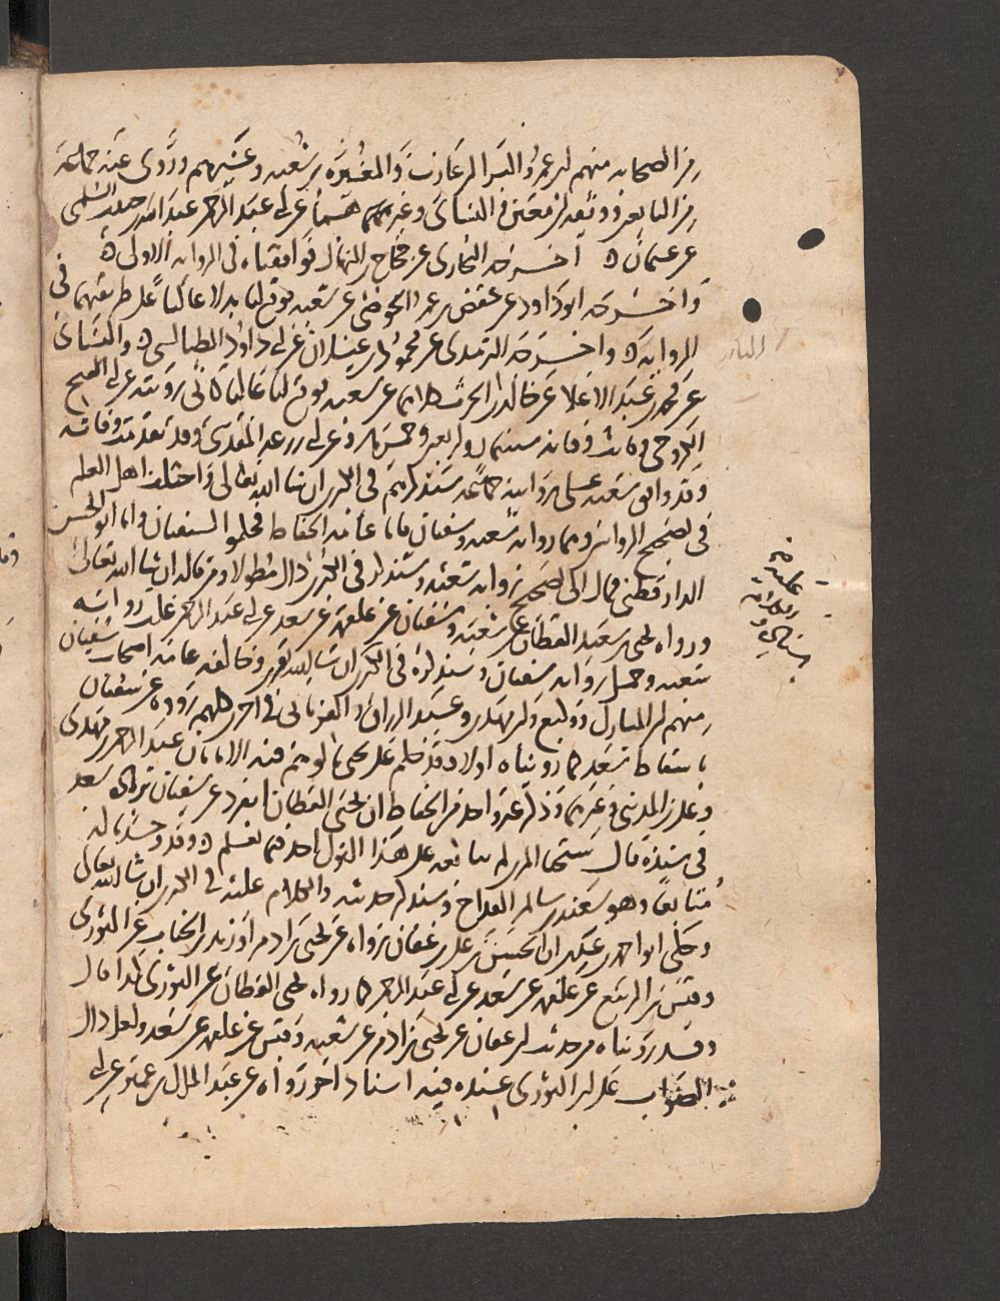 من الصحابه منهم ابن عمر والبرا بن عازب والمغيره بن شعبه وغيرهم وروى عنه جماعة
من التابعين ووثقه ابن معين والنسائى وغيرهما سمع ابى عبد الرحمن عبد الله بن حبيب السلمى
عن عثمان ه اخرجه البخارى عن حجاج بن المنهال فوافقناه فى الروايه الاولى ه
واخرجه ابو داود عن حفص بن عمر الحوضى عن شعبه فوقع لنا بدلا عاليا على طريقهما فى
الروايه ه واخرجه الترمدى عن محمود بن غيلان عن ابى داود الطيالسى ه والنسائى
عن محمد بن عبد الاعلا عن خالد بن الحرث كلاهما عن شعبه فوقع لنا عاليا كانى رويته عن ابى الفتح
الكروخى وكانت وفاته سنه ثمان واربعين وخمس مايه وعن ابى زرعه المقدسى وقد تقدمت وفاته
وقد وافق شعبه على روايته جماعة سنذكرهم فى الجزء ان شا الله تعالى واختلف اهل العلم
فى تصحيح الروايتين وهما روايه شعبه وسفيان فاما عامه الحفاظ فحكموا لسفيان واما ابو الحسن
الدارقطنى فمال الى تصحيح روايه شعبه وسنذكر فى الجزء ذلك مطولا ومن قاله ان شا الله تعالى
ورواه يحيى بن سعيد القطان عن شعبه وسفيان عن علقمه عن سعد عن ابى عبد الرحمن على روايه
شعبه وحمل روايه سفيان وسنذكره فى الجزء ان شا الله تعالى وخالفه عامه اصحاب سفيان
منهم ابن المبارك ووكيع وابن مهدى وعبد الرزاق والفريابى فى اخرين كلهم رووه عن سفيان
باسقاط سعد كما رويناه اولا وقد حكم على يحيى بالوهم فيه الامامان عبد الرحمن بن مهدى
وعلى بن المدينى وغيرهما وذكر غير واحد من الحفاظ ان يحيى القطان انفرد عن سفيان بزياده سعد
فى سنده قال شيخنا المزى لم يتابعه على هذا القول احد فيما نعلم ه وقد وجدنا له
متابعا وهو سعيد بن سالم القداح وسنذكر حديثه والكلام عليه فى الجزء ان شا الله تعالى
وحكى ابو احمد بن عدى ان الحسين بن على بن عفان رواه عن يحيى بن ادم وزيد بن الحباب عن الثورى
وقيس بن الربيع عن علقمه عن سعد عن ابى عبد الرحمن كما رواه يحيى القطان عن الثورى كذا قال
وقد رويناه من حديث ابن عفان عن يحيى بن ادم عن شعبه وقيس عن علقمه عن سعد ولعل ذلك
الصواب على ان الثورى عنده فيه اسناد اخر رواه عن عبد الملك بن عمير عن ابى